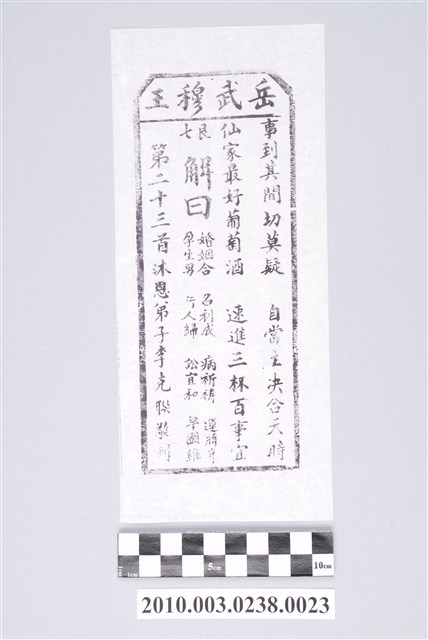 岳武穆王
事到其間切莫疑 自當主決合天時
仙家最好葡萄酒 速進三杯百事宜
艮七
解曰
婚姻合 名利成 病祈禱 運將亨
孕生男 行人歸 訟宜和 早圖維
第二十三首沐恩弟子李克聯敬刊
5cm
10cm
2010.003.0238.0023